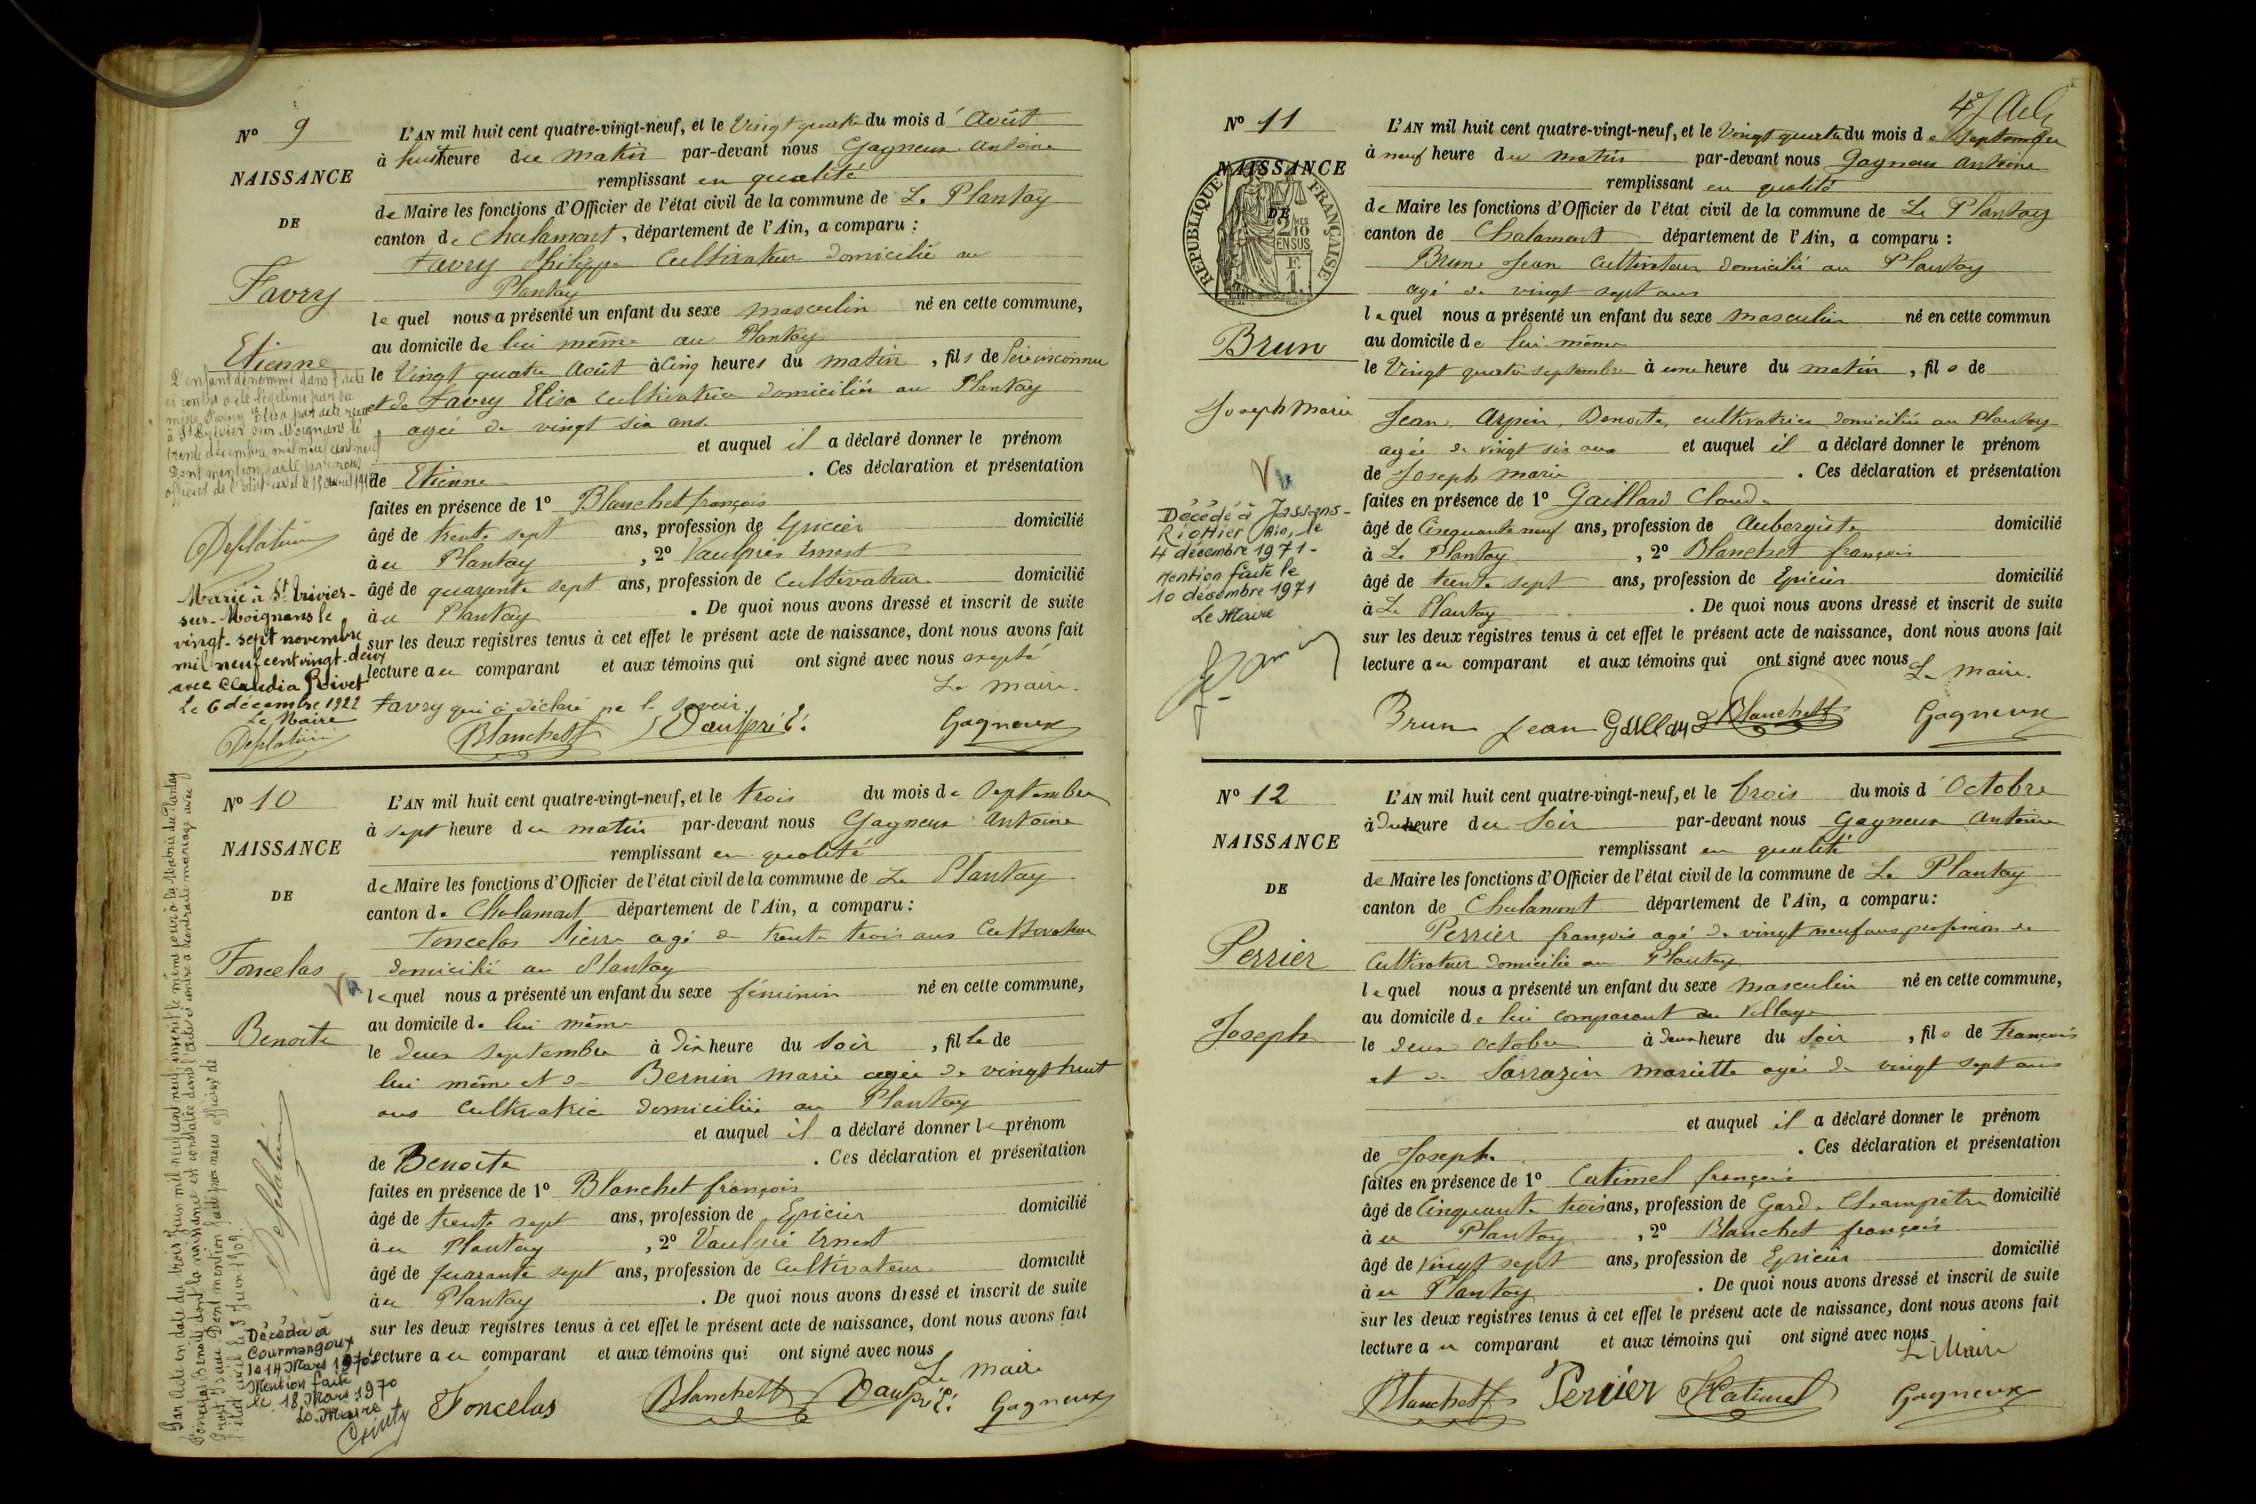 Nº 9
NAISSANCE
DE
Favry
Etienne
L'enfant dénommé dans l'acte
ci contre a été légitimé par sa
mère Favry Elisa par acte reçu
à St Trivier sur Moignans le
trente décembre mil neuf cent neuf
Dont mention faite par nous
officier de l'Etat civil le 13 avril 1910
Deplatière
Marié à St Trivier-
sur-Moignans le
vingt-sept novembre
mil neuf cent vingt-deux
avec Claudia Roivet
Le 6 décembre 1922
Le Maire
Deplatière
L'AN mil huit cent quatre-vingt-neuf, et le Vingt quatre du mois d'Août
à huit heure du matin par-devant nous Gagneux Antoine
remplissant en qualité
de Maire les fonctions d'Officier de l'état civil de la commune de Le Plantay
canton de Chalamont, département de l'Ain, a comparu :
Favry Philippe Cultivateur domicilié au
Plantay
lequel nous a présenté un enfant du sexe masculin né en cette commune,
au domicile de lui même au Plantay
le Vingt quatre Août à Cinq heures du matin, fils de Père inconnu
et de Favry Elisa cultivatrice domiciliée au Plantay
agée de vingt six ans
et auquel il a déclaré donner le prénom
de Etienne . Ces déclaration et présentation
faites en présence de 1º Blanchet françois
âgé de trente sept ans, profession de Epicier domicilié
à au Plantay , 2º Vaulpré Ernest
âgé de quarante sept ans, profession de Cultivateur domicilié
à au Plantay . De quoi nous avons dressé et inscrit de suite
sur les deux registres tenus à cet effet le présent acte de naissance, dont nous avons fait
lecture au comparant et aux témoins qui ont signé avec nous excepté
Favry qui a déclaré ne le savoir. Le Maire.
Blanchett Vaulpré E. Gagneux
Nº 10
NAISSANCE
DE
Foncelas
Benoite
Vu
Par Acte en date du trois Juin mil neuf cent neuf, inscrit le même jour à la Mairie du Plantay
Foncelas Benoite dont la naissance est constatée dans l'acte ci contre a contracté mariage avec
Dont mention faite par nous officier de
l'état civil le 3 Juin 1909.
Deplatière
Décédée à
Courmangoux
le 14 Mars 1970
Mention faite
le 18 Mars 1970
Le Maire
L'AN mil huit cent quatre-vingt-neuf, et le trois du mois de Septembre
à sept heure du matin par-devant nous Gagneux Antoine
remplissant en qualité
de Maire les fonctions d'Officier de l'état civil de la commune de Le Plantay
canton de Chalamont département de l'Ain, a comparu :
Foncelas Pierre agé de trente trois ans Cultivateur
domicilié au Plantay
lequel nous a présenté un enfant du sexe féminin né en cette commune,
au domicile de lui même
le deux septembre à dix heure du soir , fille de
lui même et de Bernin Marie agée de vingt huit
ans Cultivatrice domiciliée au Plantay
et auquel il a déclaré donner le prénom
de Benoite . Ces déclaration et présentation
faites en présence de 1º Blanchet françois
âgé de trente sept ans, profession de Epicier domicilié
à au Plantay , 2º Vaulpré Ernest
âgé de quarante sept ans, profession de Cultivateur domicilié
à au Plantay . De quoi nous avons dressé et inscrit de suite
sur les deux registres tenus à cet effet le présent acte de naissance, dont nous avons fait
lecture au comparant et aux témoins qui ont signé avec nous
Le Maire
Foncelas Blanchett Vaulpré E. Gagneux
Nº 11
NAISSANCE
DE
RÉPUBLIQUE FRANÇAISE
2/10 EN SUS
F. 1.
Brun
Joseph Marie
Vu
Décédé à Jassans-
Riottier Ain, le
4 décembre 1971-
Mention faite le
10 décembre 1971
Le Maire
L'AN mil huit cent quatre-vingt-neuf, et le Vingt quatre du mois de Septembre
à neuf heure du matin par-devant nous Gagneux Antoine
remplissant en qualité
de Maire les fonctions d'Officier de l'état civil de la commune de Le Plantay
canton de Chalamont département de l'Ain, a comparu :
Brun Jean cultivateur domicilié au Plantay
agé de vingt sept ans
lequel nous a présenté un enfant du sexe masculin né en cette commun
au domicile de lui-même
le Vingt quatre septembre à une heure du matin , fils de
Jean, Arpin, Benoite, cultivatrice domiciliée au Plantay
agée de vingt six ans et auquel il a déclaré donner le prénom
de Joseph Marie . Ces déclaration et présentation
faites en présence de 1º Gaillard Claude
âgé de Cinquante neuf ans, profession de Aubergiste domicilié
à Le Plantay , 2º Blanchet françois
âgé de trente sept ans, profession de Epicier domicilié
à Le Plantay . De quoi nous avons dressé et inscrit de suite
sur les deux registres tenus à cet effet le présent acte de naissance, dont nous avons fait
lecture au comparant et aux témoins qui ont signé avec nous
Le Maire.
Brun Jean Gaillard Blanchett Gagneux
Nº 12
NAISSANCE
DE
Perrier
Joseph
L'AN mil huit cent quatre-vingt-neuf, et le trois du mois d'Octobre
à deux heure du Soir par-devant nous Gagneux Antoine
remplissant en qualité
de Maire les fonctions d'Officier de l'état civil de la commune de Le Plantay
canton de Chalamont département de l'Ain, a comparu :
Perrier françois agé de vingt neuf ans profession de
Cultivateur domicilié au Plantay
lequel nous a présenté un enfant du sexe masculin né en cette commune,
au domicile de lui comparant au Village
le deux Octobre à deux heure du Soir , fils de François
et de Sarrazin Mariette agée de vingt sept ans
et auquel il a déclaré donner le prénom
de Joseph . Ces déclaration et présentation
faites en présence de 1º Catimel françois
âgé de Cinquante trois ans, profession de Garde Champêtre domicilié
à au Plantay , 2º Blanchet françois
âgé de Vingt sept ans, profession de Epicier domicilié
à au Plantay . De quoi nous avons dressé et inscrit de suite
sur les deux registres tenus à cet effet le présent acte de naissance, dont nous avons fait
lecture au comparant et aux témoins qui ont signé avec nous
Le Maire
Blanchett Perrier Catimel Gagneux